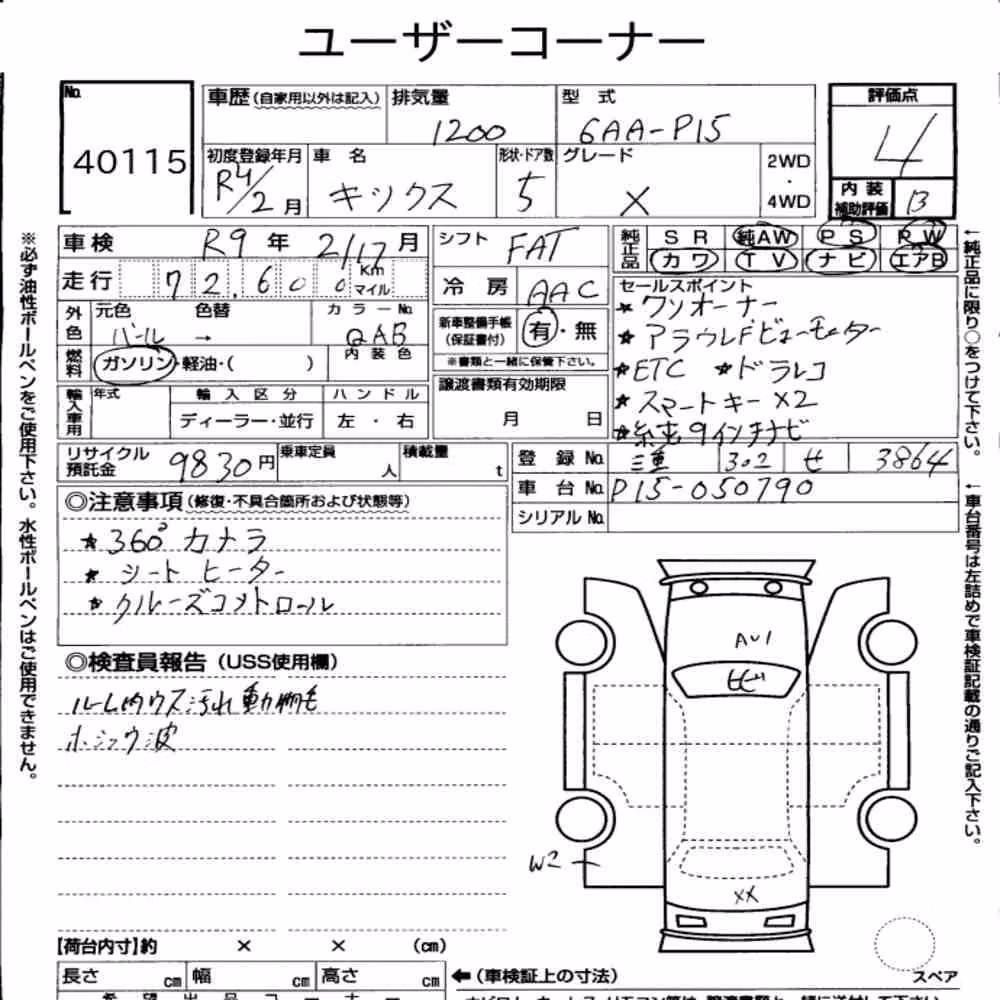 ユーザーコーナー
No. 40115
車歴(自家用以外は記入) 排気量 1200 型式 6AA-P15
評価点 4
初度登録年月 R4/2月 車名 キックス 形状・ドア数 5 グレード X 2WD・4WD
内装補助評価 B
車検 R9年 2/17月 シフト FAT
純正品 SR 純AW PS PW
カワ TV ナビ エアB
走行 72,600 Km マイル 冷房 AAC
外色 元色 パール 色替 → カラーNo. QAB 内装色
新車整備手帳(保証書付) 有・無
※書類と一緒に保管下さい。
燃料 ガソリン・軽油・( )
輸入車用 年式 輸入区分 ディーラー・並行 ハンドル 左・右
譲渡書類有効期限 月 日
セールスポイント
★ワンオーナー
★アラウンドビューモニター
★ETC ★ドラレコ
★スマートキーX2
★純正9インチナビ
リサイクル預託金 9830円 乗車定員 人 積載量 t
登録No. 三重 302 せ 3864
車台No. P15-050790
シリアルNo.
◎注意事項(修復・不具合箇所および状態等)
★360°カメラ
★シートヒーター
★クルーズコントロール
◎検査員報告(USS使用欄)
ルーム内ウス汚れ 動物毛
ホシュウ波
AU1
ヒビ
W2
XX
スペア
【荷台内寸】約 × × (cm)
長さ cm 幅 cm 高さ cm ←(車検証上の寸法)
※必ず油性ボールペンをご使用下さい。水性ボールペンはご使用できません。
←純正品に限り○をつけて下さい。
←車台番号は左詰めで車検証記載の通りご記入下さい。